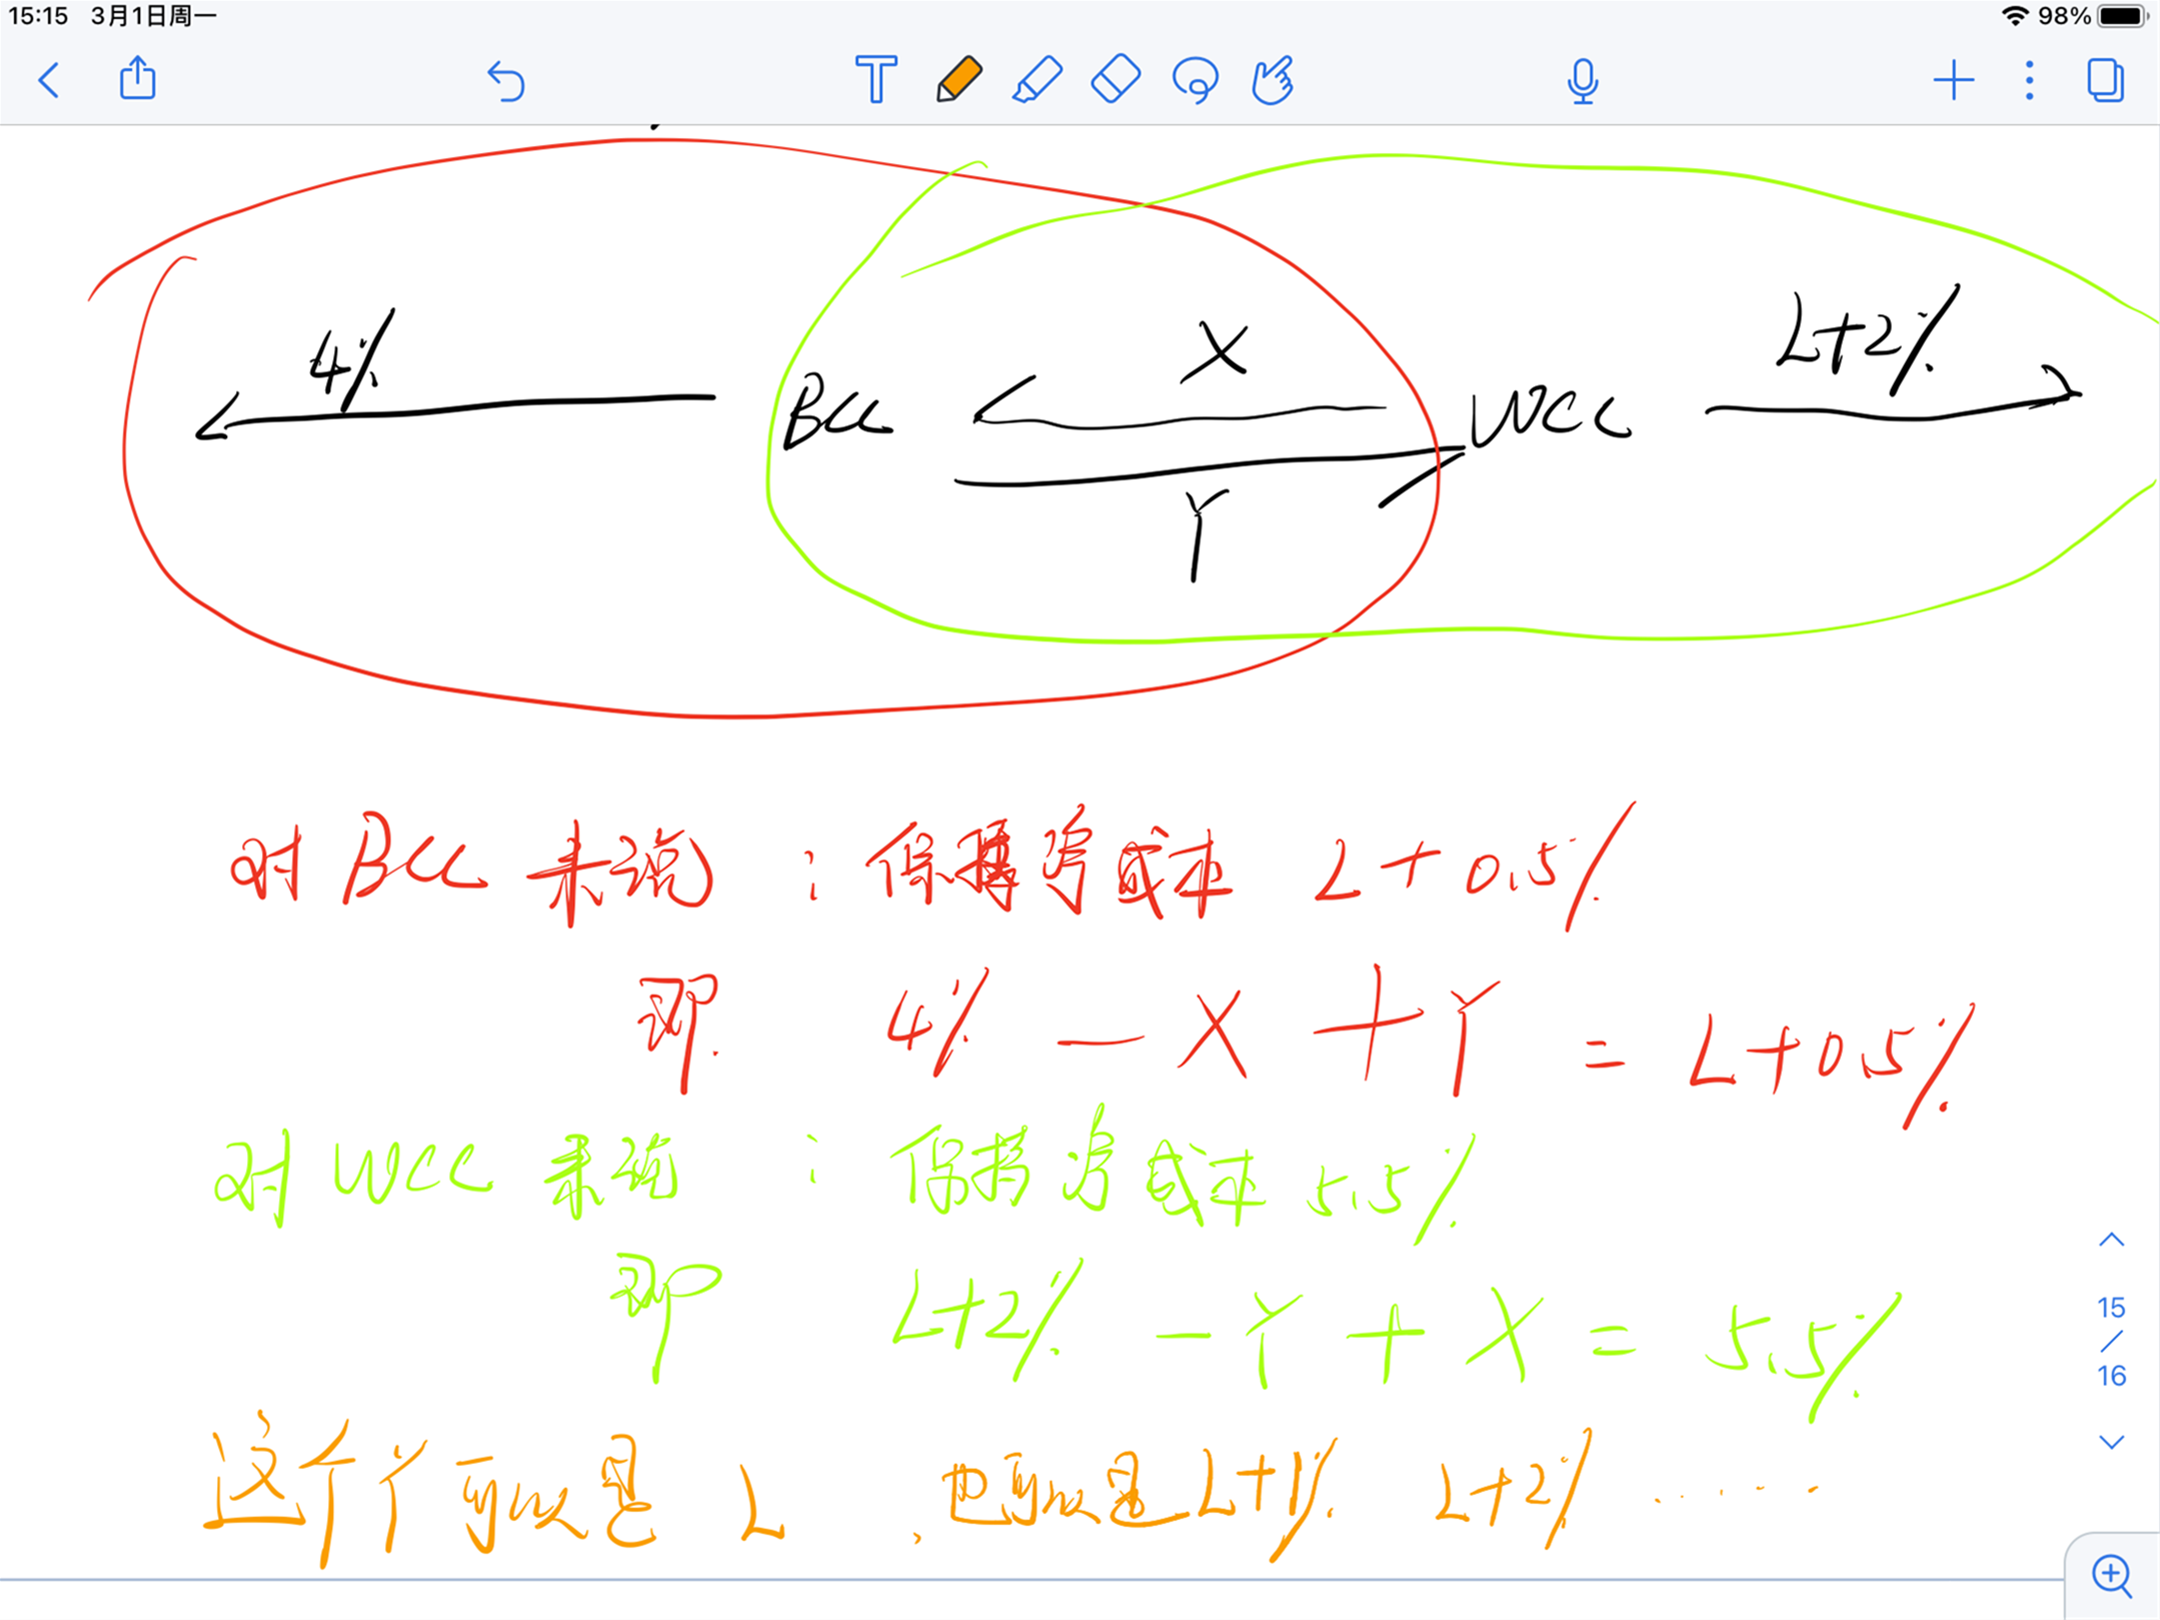 15:15 3月1日周一 98%
4% BCC X WCC L+2%
Y
对 BCC 来说 : 保持净成本 L+0.5%
即. 4% — X + Y = L+0.5%
对 WCC 来说 : 保持净成本 5.5%
即 L+2% — Y + X = 5.5%
这个Y可以是 L , 也可以是L+1%. L+2% ......
15
/
16